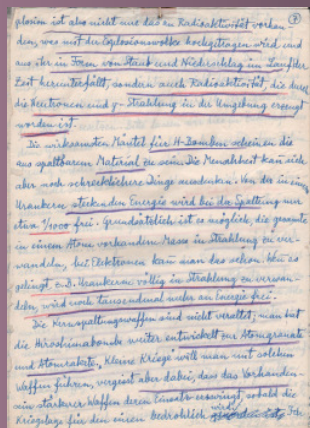 ⑦
plosion ist also nicht nur das an Radioaktivität vorhan-
den, was mit der Explosionswolke hochgetragen wird und
aus ihr in Form von Staub und Niederschlag im Lauf der
Zeit herunterfällt, sondern auch Radioaktivität, die durch
die Neutronen und γ-Strahlung in der Umgebung erzeugt
worden ist.
Die wirksamsten Mäntel für H-Bomben scheinen die
aus spaltbarem Material zu sein. Die Menschheit kan sich
aber noch schrecklichere Dinge ausdenken. Von der in einem
Urankern steckenden Energie wird bei der Spaltung nur
etwa 1/1000 frei. Grundsätzlich ist es möglich, die gesamte
in einem Atom vorhanden Masse in Strahlung zu ver-
wandeln, bei Elektronen kann man das schon. Wen es
gelingt, z.B. Urankerne völlig in Strahlung zu verwan-
deln, wird noch tausendmal mehr an Energie frei.
Die Kernspaltungswaffen sind nicht veraltet, man hat
die Hiroshimabombe weiter entwickelt zur Atomgranate
und Atomrakete. Kleine Kriege will man mit solchen
Waffen führen, vergisst aber dabei, dass das Vorhanden-
sein stärkerer Waffen deren Einsatz erzwingt, sobald die
Kriegslage für den einen bedrohlich wird.